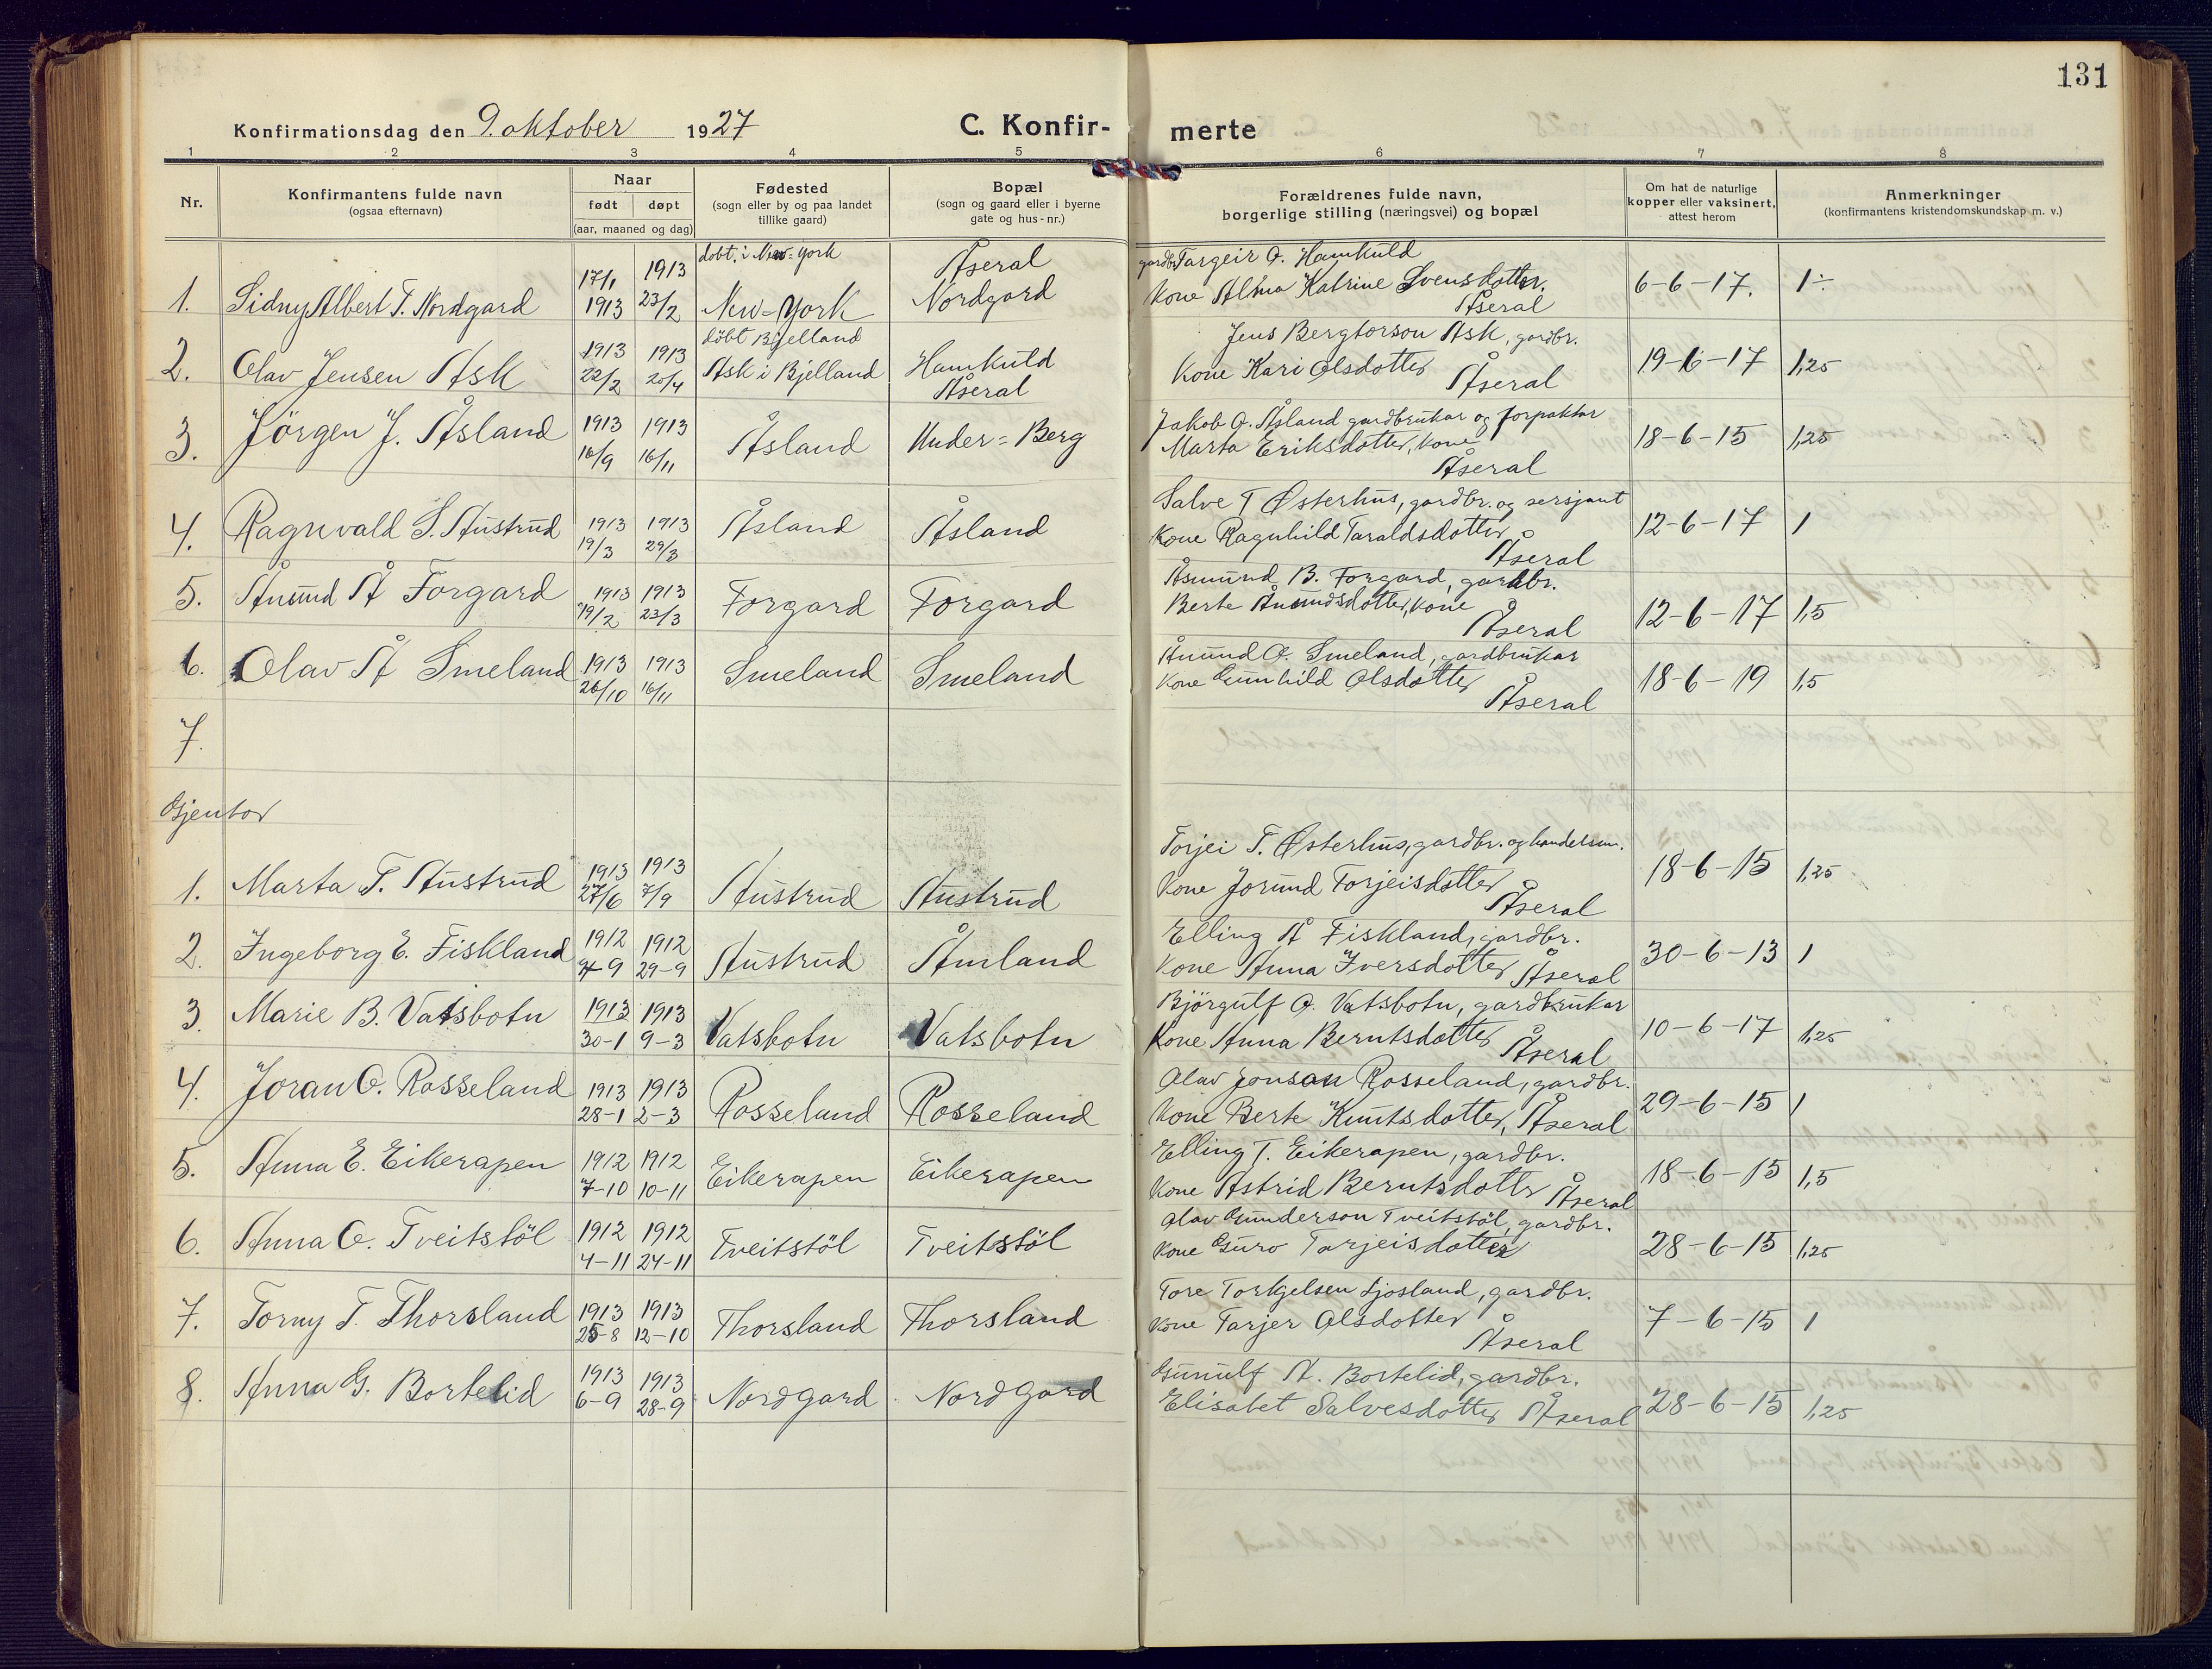 131
Konfirmationsdag den 9. oktober 1927
C. Konfir- merte
1 2 3 4 5 6 7 8
Nr.
Konfirmantens fulde navn
(ogsaa efternavn)
Naar
født døpt
(aar, maaned og dag)
Fødested
(sogn eller by og paa landet
tillike gaard)
Bopæl
(sogn og gaard eller i byerne
gate og hus-nr.)
Forældrenes fulde navn,
borgerlige stilling (næringsvei) og bopæl
Om hat de naturlige
kopper eller vaksinert,
attest herom
Anmerkninger
(konfirmantens kristendomskundskap m. v.)
døbt. i New-York Åseral gardbr Targeir O. Hamkuld
17/1 1913 Kone Alma Katrine Svensdotter.
1. Sidny Albert T. Nordgard 1913 23/2 New-York Nordgard Åseral 6-6-17. 1÷
døbt Bjelland Jens Bergtorson Ask, gardbr.
2. Olav Jensen Ask 1913 1913 Ask i Bjelland Hamkuld Kone Kari Olsdotter 19-6-17 1,25
22/2 20/4 Åseral Åseral
Jakob O. Åsland gardbrukar og forpaktar
3. Jörgen J. Åsland 1913 1913 Åsland Under=Berg Marta Eriksdotter, kone 18-6-15 1,25
16/9 16/11 Åseral
Salve T Østerhus, gardbr. og sersjant
4. Ragnvald S. Austrud 1913 1913 Åsland Åsland Kone Ragnhild Taraldsdotter 12-6-17 1
19/3 29/3 Åseral
Åsmund B. Forgard, gardbr.
5. Ånund Å Forgard 1913 1913 Forgard Forgard Berte Ånundsdotter, kone 12-6-17 1,5
19/2 23/3 Åseral
Ånund O. Smeland, gardbrukar
6. Olav Å Smeland 1913 1913 Smeland Smeland Kone Gunhild Olsdotter 18-6-19 1,5
26/10 16/11 Åseral
7.
Gjentor
Torjei T. Østerhus, gardbr. og handelsm.
1. Marta T. Austrud 1913 1913 Austrud Austrud Kone Jorund Torjeisdotter 18-6-15 1,25
27/6 7/9 Åseral
Elling Å Fiskland, gardbr.
2. Ingeborg E. Fiskland 1912 1912 Austrud Åmland Kone Anna Iversdotter Åseral 30-6-13 1
4-9 29-9
Björgulf O. Vatsbotn, gardbrukar
3. Marie B. Vatsbotn 1913 1913 Vatsbotn Vatsbotn Kone Anna Berntsdotter Åseral 10-6-17 1,25
30-1 9-3
Olav Jonson Rosseland, gardbr.
4. Joran O. Rosseland 1913 1913 Rosseland Rosseland Kone Berte Knutsdotter, Åseral 29-6-15 1
28-1 2-3
Elling T. Eikerapen, gardbr.
5. Anna E. Eikerapen 1912 1912 Eikerapen Eikerapen Kone Astrid Berntsdottr Åseral 18-6-15 1,5
7-10 10-11
Olav Gunderson Tveitstöl, gardbr.
6. Anna O. Tveitstöl 1912 1912 Tveitstöl Tveitstöl Kone Guro Tarjeisdotter 28-6-15 1,25
4-11 24-11
Tore Torkjelsen Ljosland, gardbr.
7. Torny T. Thorsland 1913 1913 Thorsland Thorsland Kone Tarjer Olsdotter 7-6-15 1
25-8 12-10 Åseral
Gunulf A. Bortelid, gardbr.
8. Anna G. Bortelid 1913 1913 Nordgard Nordgard Elisabet Salvesdotter Åseral 28-6-15 1,25
6-9 28-9